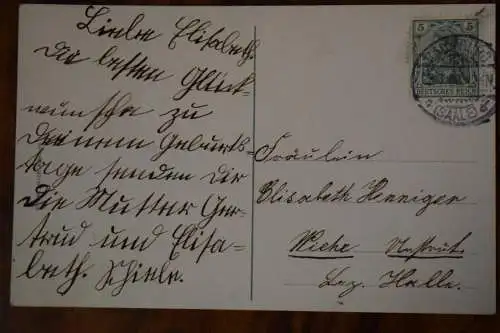 Liebe Elisabeth.
Die besten Glück-
wünsche zu
Deinem Geburts-
tage senden Dir
Die Mutter Ger-
trud und Elisa-
beth. Schiele.
5 5
DEUTSCHES REICH
(SAALE)
Fräulein
Elisabeth Henniger
Wiehe Unstrut.
Bez. Halle.